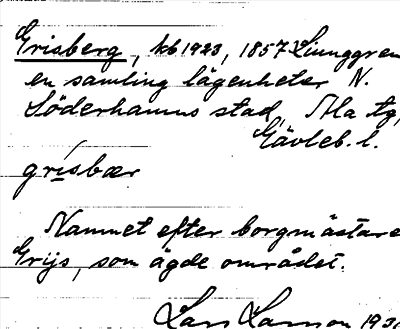 Grisberg, kb 1923, 1857 Ljunggren
en samling lägenheter N.
Söderhamns stad, Ala tg,
Gävleb. l.
grisbær
Namnet efter borgmästare
Grijs, som ägde området.
Lars Larson 193